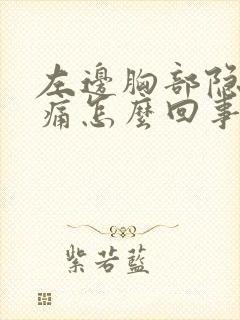 左邊胸部隐
痛怎麼回事
紫若藍